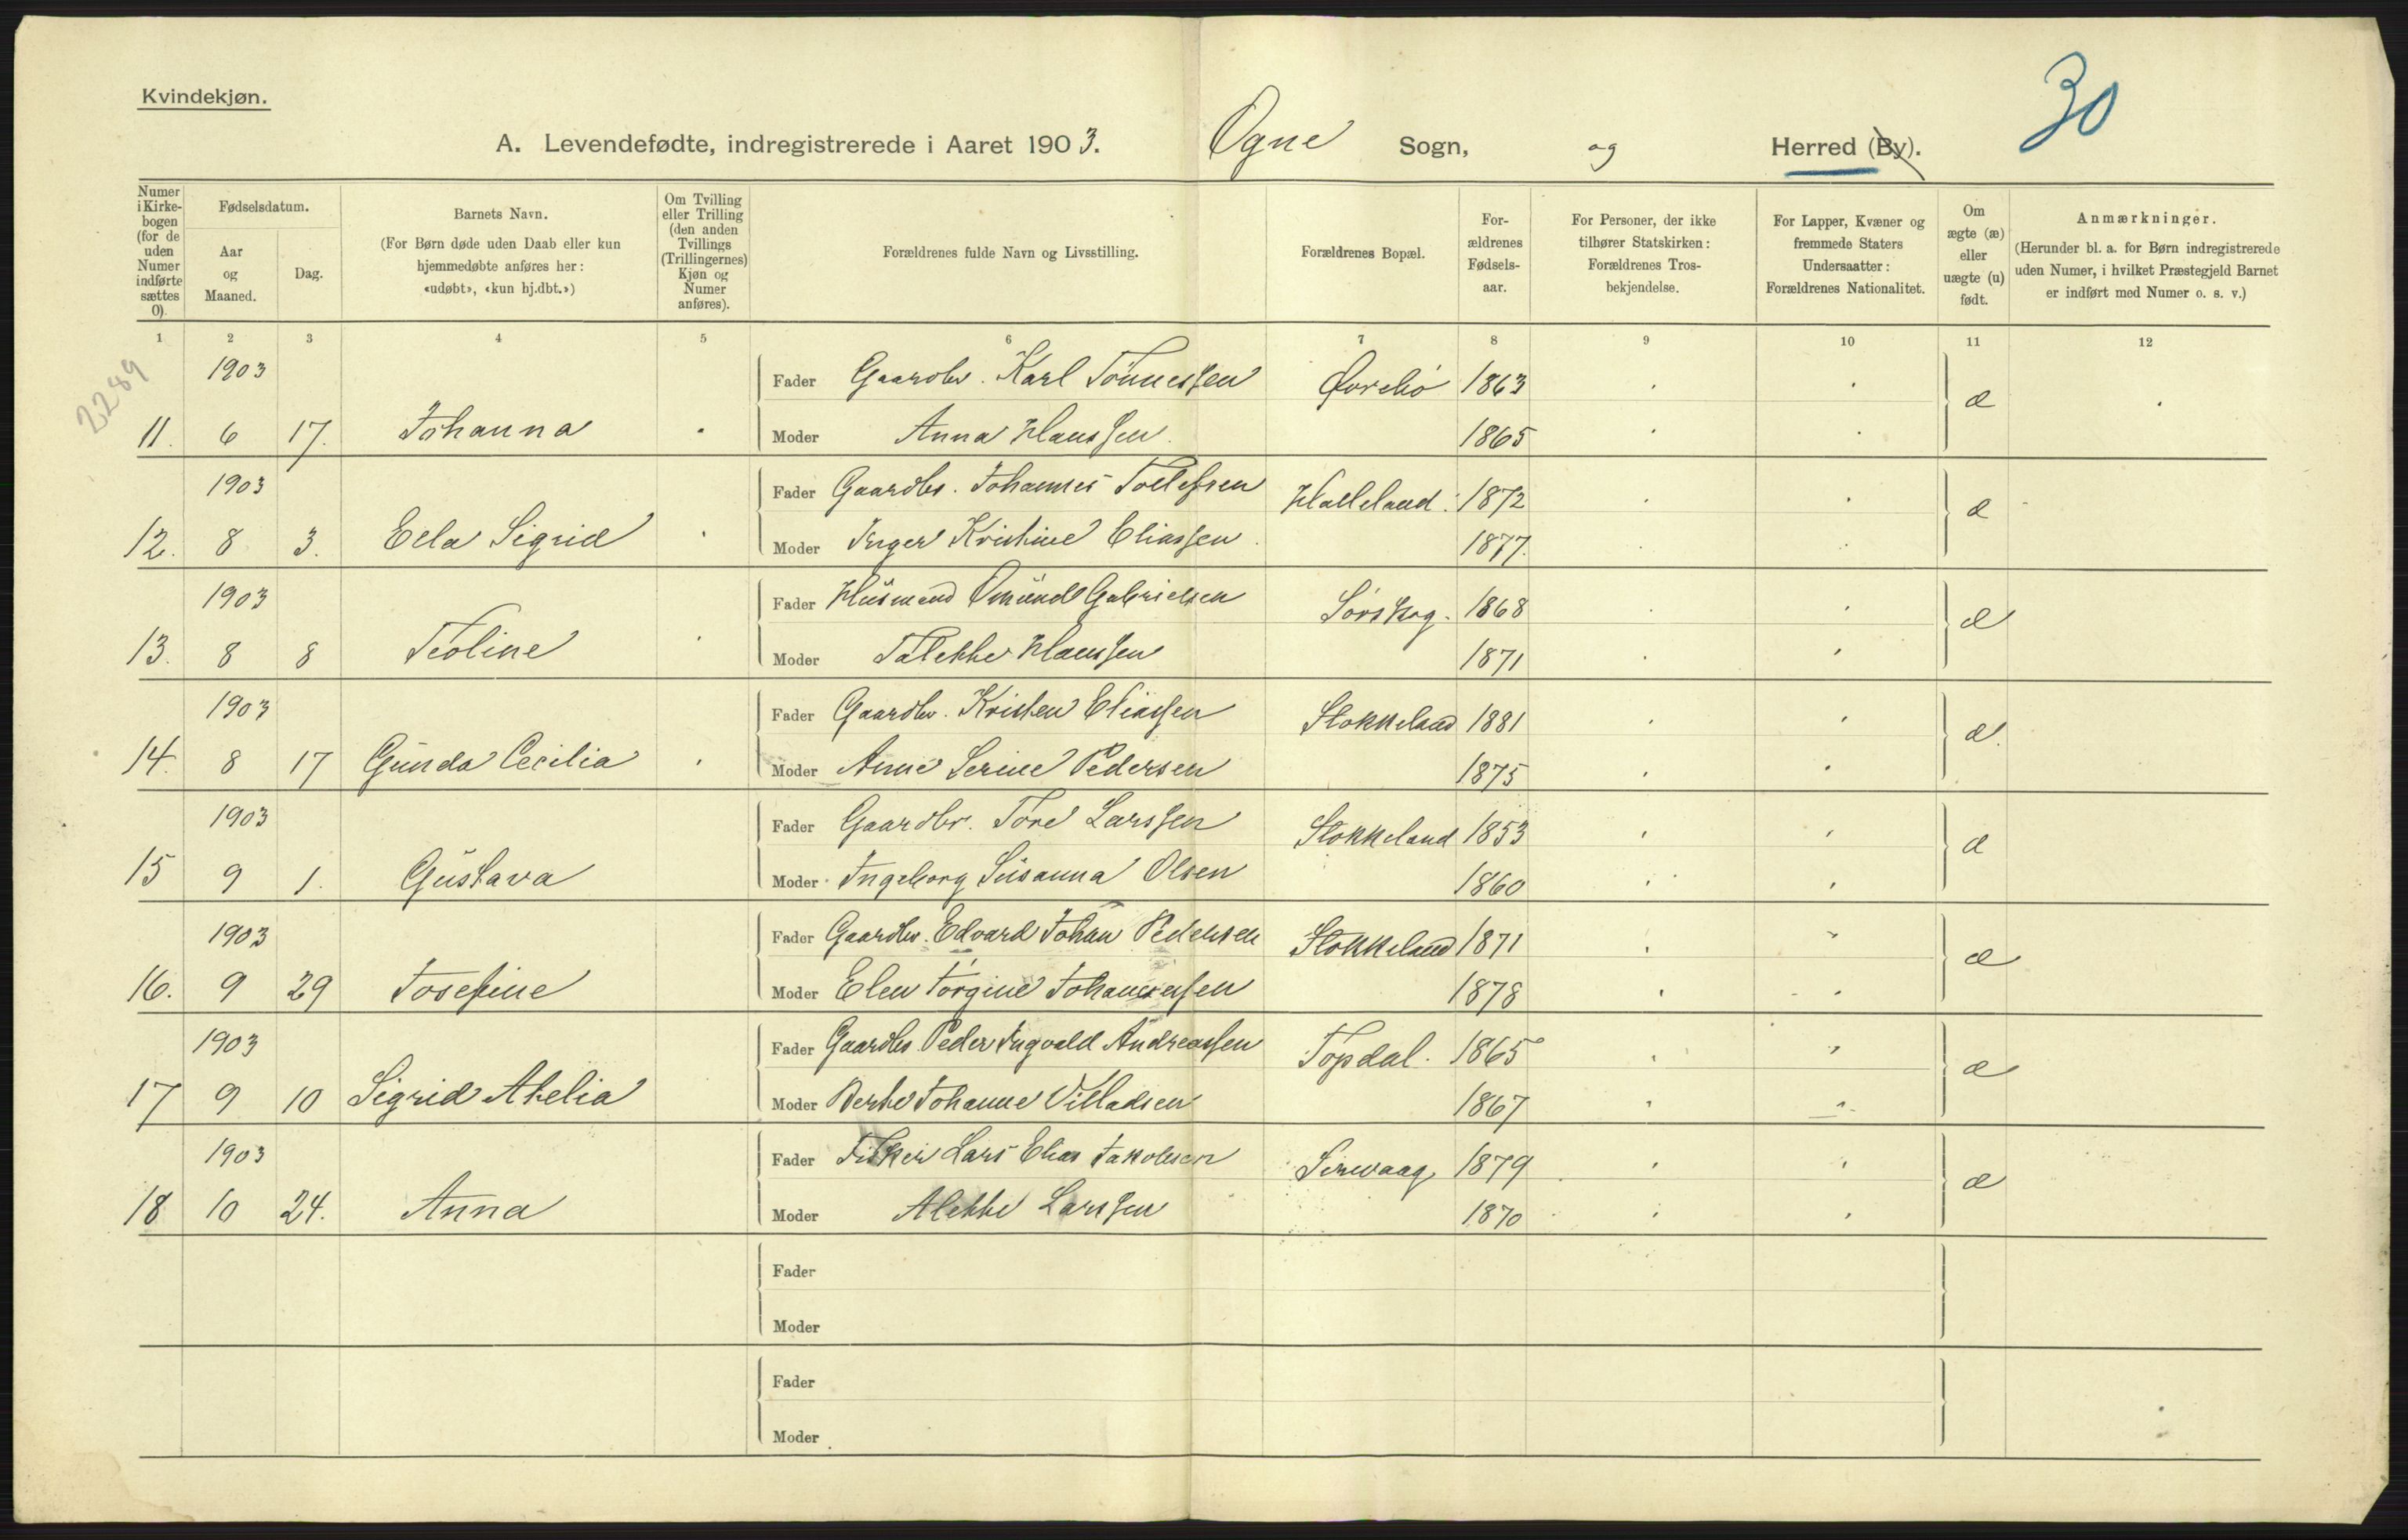 Kvindekjøn.
30
A. Levendefødte, indregistrerede i Aaret 1903. Ogne Sogn, og Herred (By).
Numer i Kirkebogen (for de uden Numer indførte sættes 0).
Fødselsdatum.
Aar og Maaned.
Dag.
Barnets Navn.
(For Børn døde uden Daab eller kun hjemmedøbte anføres her: «udøbt», «kun hj.dbt.»)
Om Tvilling eller Trilling (den anden Tvillings (Trillingernes) Kjøn og Numer anføres).
Forældrenes fulde Navn og Livsstilling.
Forældrenes Bopæl.
Forældrenes Fødselsaar.
For Personer, der ikke tilhører Statskirken: Forældrenes Trosbekjendelse.
For Lapper, Kvæner og fremmede Staters Undersaatter: Forældrenes Nationalitet.
Om ægte (æ) eller uægte (u) født.
Anmærkninger.
(Herunder bl. a. for Børn indregistrerede uden Numer, i hvilket Præstegjeld Barnet er indført med Numer o. s. v.)
1 2 3 4 5 6 7 8 9 10 11 12
2289
1903 Fader Gaardbr. Karl Tönnessen Øvrebö 1863 æ
11. 6 17. Johanna Moder Anna Hanssen 1865
1903 Fader Gaardbr. Johannes Tollefsen Halleland. 1872 æ
12. 8 3. Ella Sigrid Moder Inger Kristine Eliassen 1877.
1903 Fader Husmand Omund Gabrielsen Sörskog. 1868 æ
13. 8 8 Teoline Moder Talekke Hanssen 1871
1903 Fader Gaardbr. Kristen Eliassen Stokkeland 1881 æ.
14. 8 17 Gunda Cecilia Moder Anne Serine Pedersen 1875
1903 Fader Gaardbr. Tore Larssen Stokkeland 1853 æ
15 9 1. Gustava Moder Ingeborg Susanna Olsen 1860
1903 Fader Gaardbr. Edvard Johan Pedersen Stokkeland 1871 æ
16. 9 29 Josefine Moder Elen Torgine Johannessen 1878
1903 Fader Gaardbr Peder Ingvald Andreassen Topdal. 1865 æ
17 9 10 Sigrid Atelia Moder Berte Johanne Villadsen 1867
1903 Fader Fisker Lars Elias Jakobsen Sirevaag 1879 æ
18 10 24. Anna Moder Alette Larssen 1870
Fader
Moder
Fader
Moder